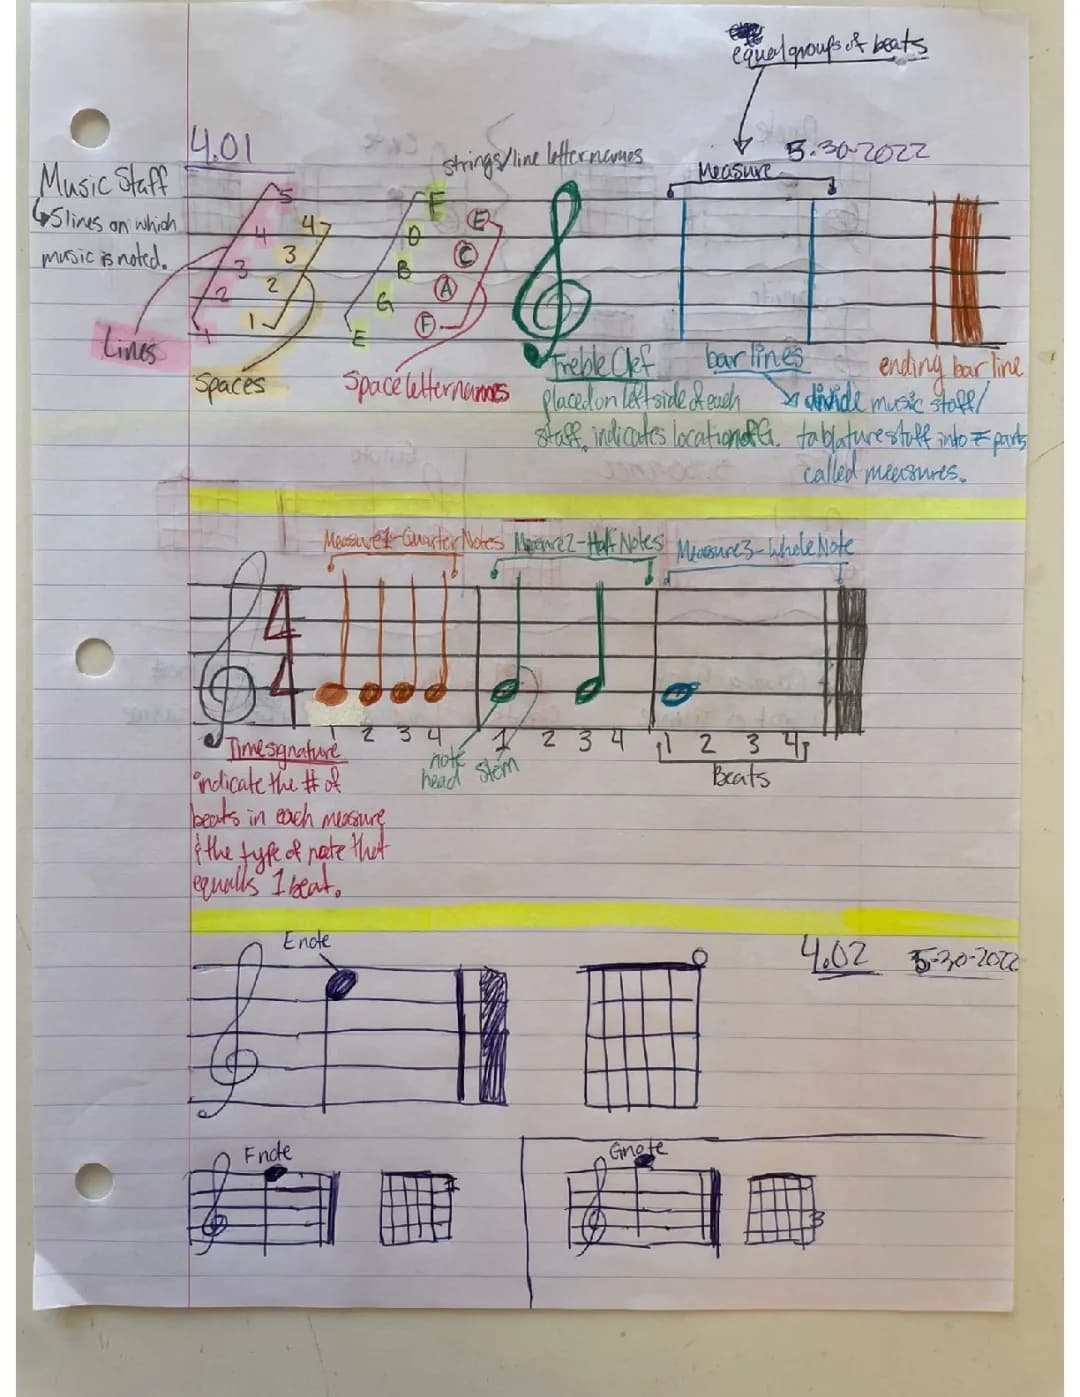 equal groups of beats
4.01
5-30-2022
strings/line letter names
Measure
Music Staff
5 lines on which
music is noted.
5
4
3
2
1
4
3
2
1
F
D
B
G
E
E
C
A
F
Lines
Spaces
Space letter names
Treble Clef
placed on left side of each
staff, indicates location of G.
bar lines
divide music staff/
tablature staff into = parts
called measures.
ending bar line
Measure 1-Quarter Notes
Measure 2-Half Notes
Measure 3-Whole Note
4
4
1 2 3 4
1 2 3 4
1 2 3 4
note
head
stem
Beats
Time signature
indicate the # of
beats in each measure
& the type of note that
equalls 1 beat.
E note
4.02
5-30-2022
F note
1
G note
3